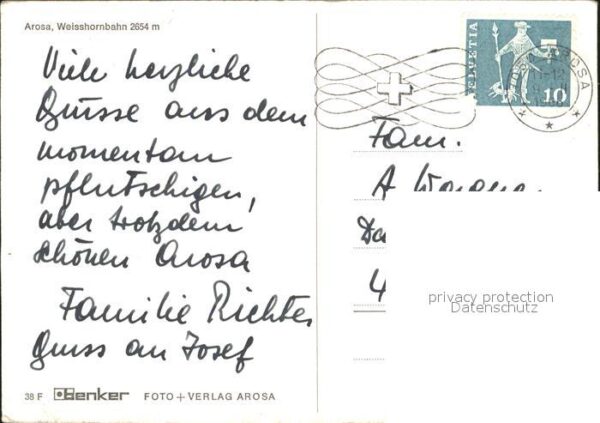 Arosa, Weisshornbahn 2654 m
Viele herzliche
Grüsse aus dem
momentan
pflutschigen,
aber trotzdem
schönen Arosa
Familie Richter
Gruss an Josef
38 F Benker FOTO + VERLAG AROSA
HELVETIA
10
AROSA
Fam.
A
Da
4
privacy protection
Datenschutz